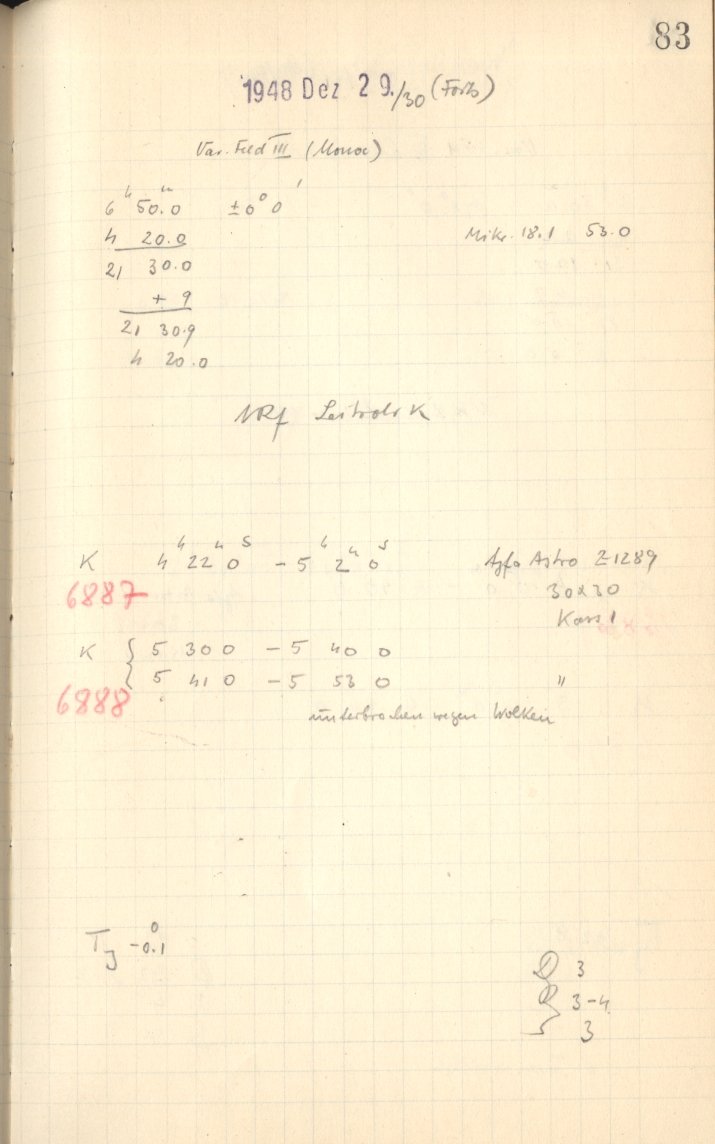 83
1948 Dez 29./30 (Forts)
Var. Feld III (Monoc)
6h 50.m0 ±0° 0'
4 20.0
21 30.0
+ 9
21 30.9
4 20.0
Mikr. 18.1 53.0
NRf Leitrohr K
K 4h 22m 0s - 5h 2m 0s Agfa Astro Z1289
6887
30x30
Kass 1
K { 5 30 0 - 5 40 0
5 41 0 - 5 53 0 "
6888
unterbrochen wegen Wolken
TJ -0.°1
3
3-4
3